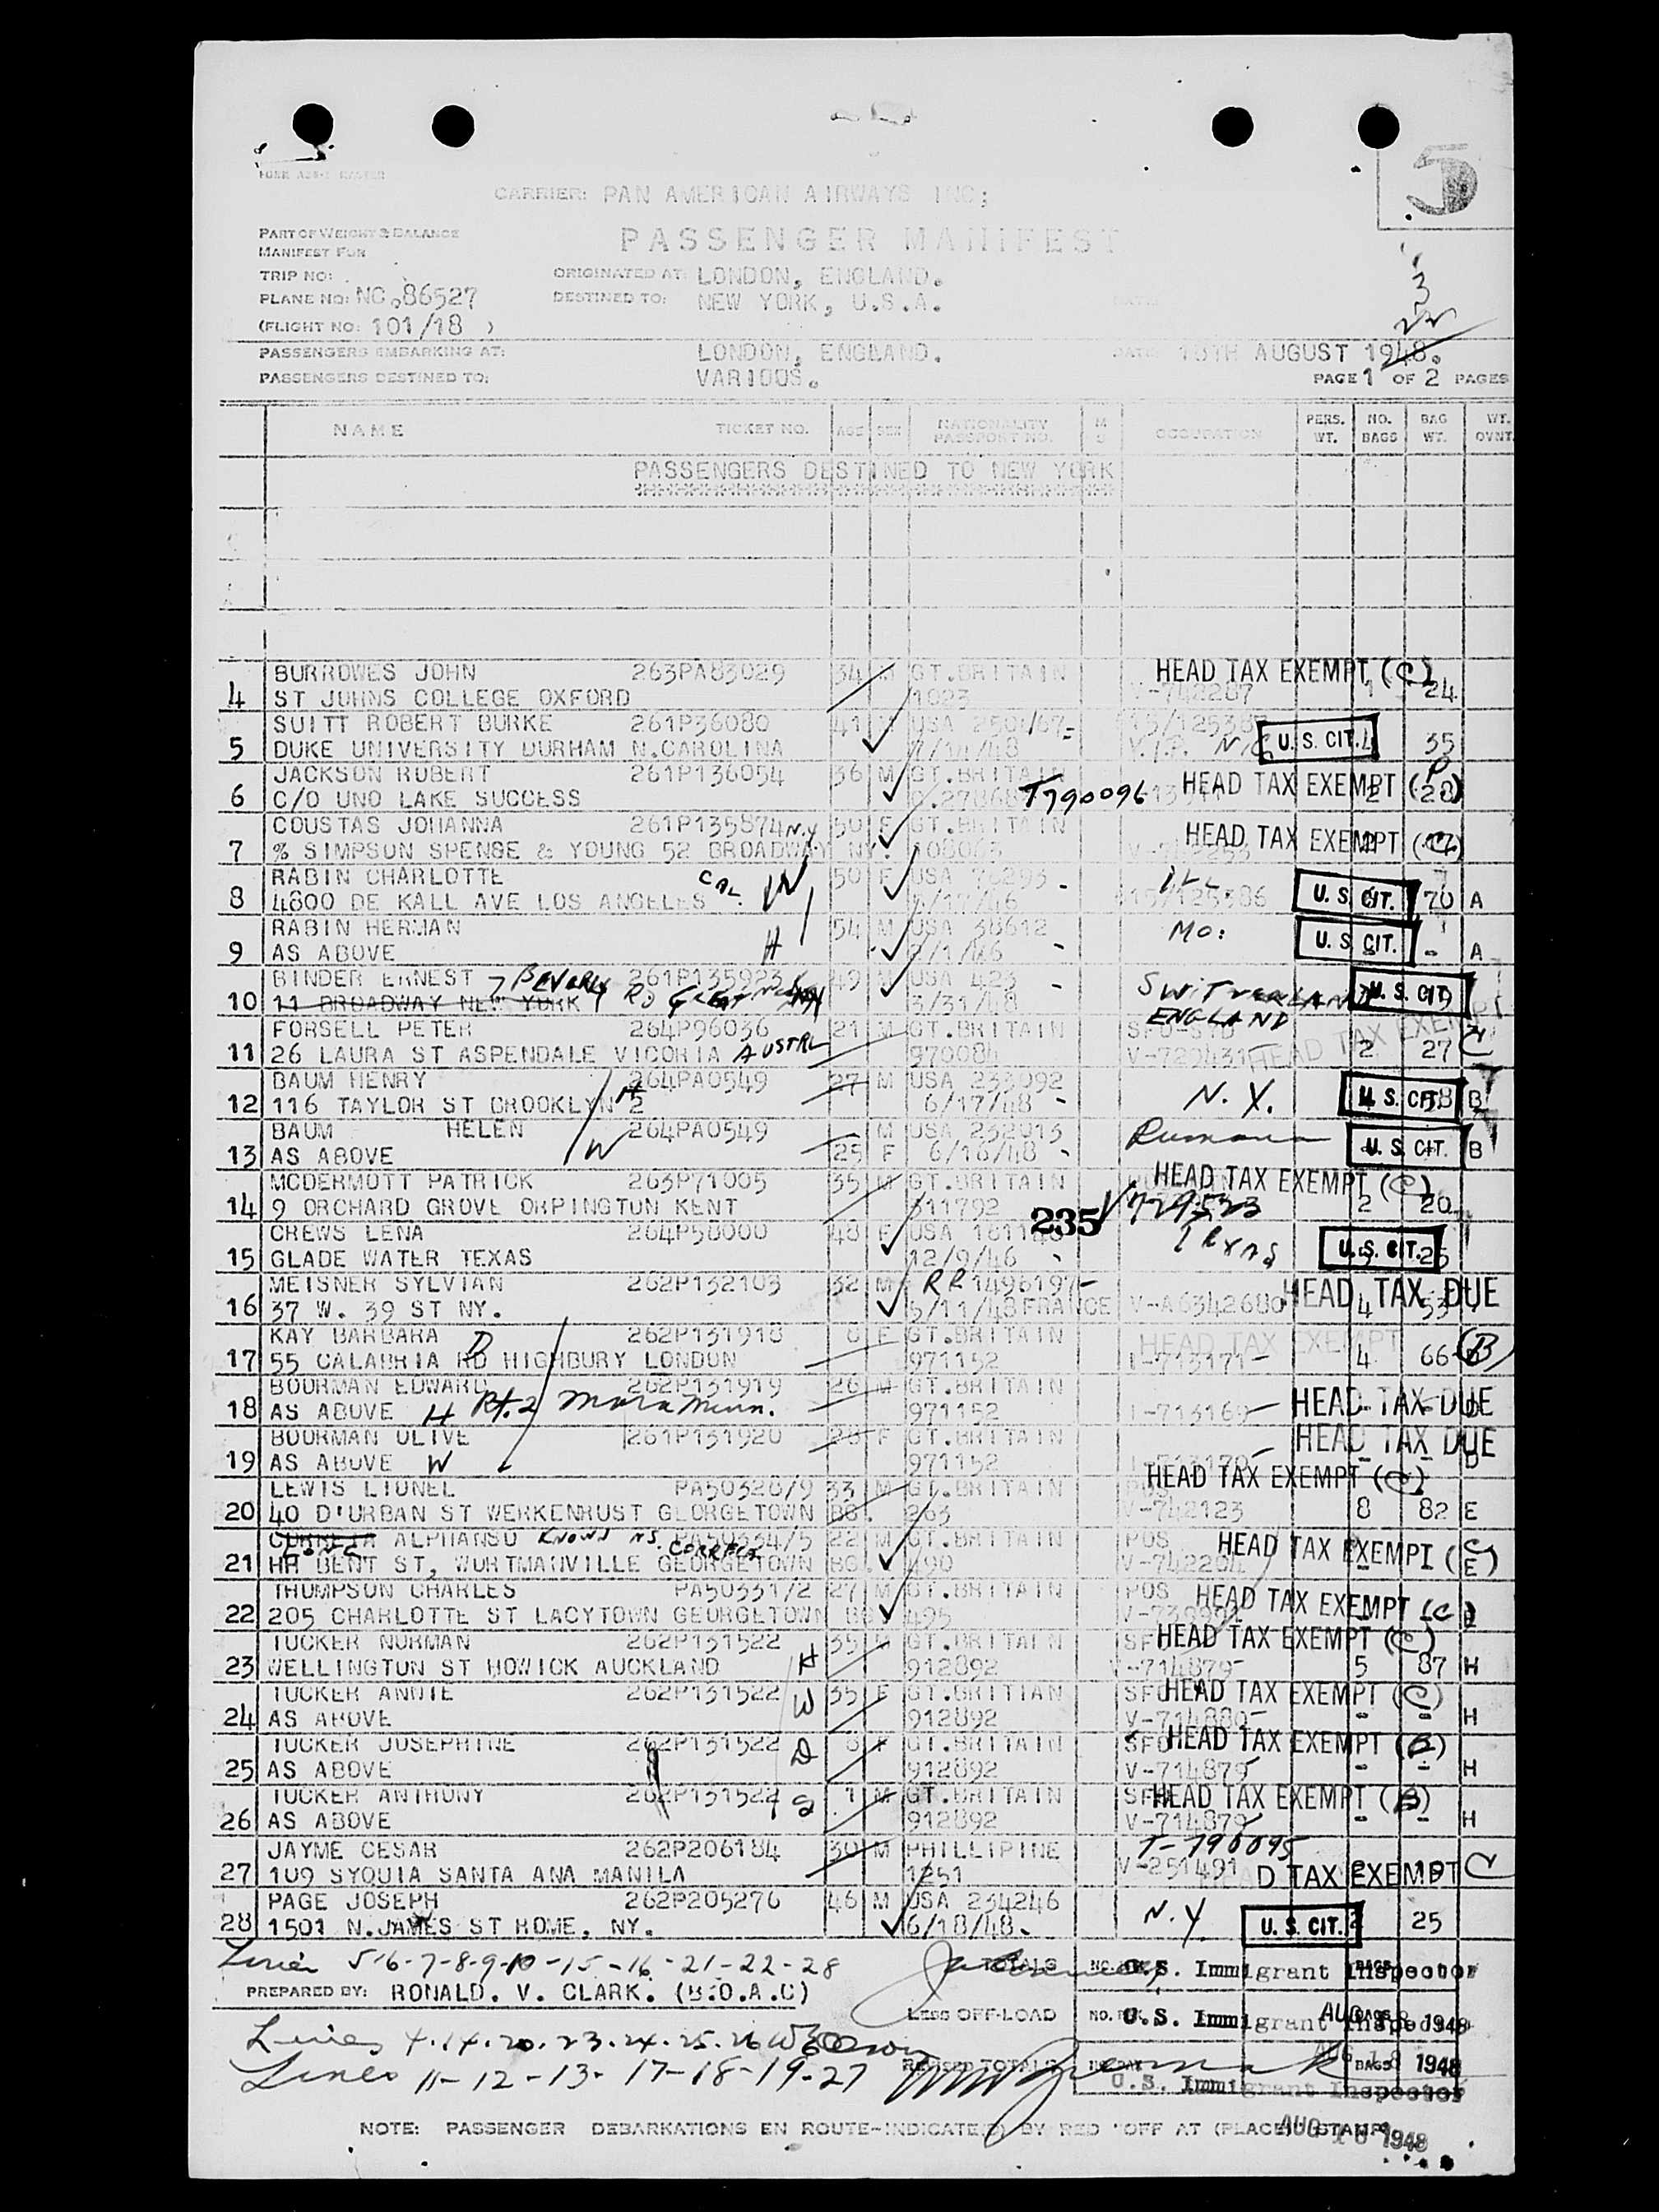 5
CARRIER: PAN AMERICAN AIRWAYS INC;
PART OF WEIGHT & BALANCE
MANIFEST FOR
PASSENGER MANIFEST
TRIP NO:
ORIGINATED AT: LONDON, ENGLAND.
PLANE NO: NC.86527
DESTINED TO: NEW YORK, U.S.A.
3
(FLIGHT NO: 101/18 )
PASSENGERS EMBARKING AT: LONDON, ENGLAND. AUGUST 1948.
PASSENGERS DESTINED TO: VARIOUS. PAGE 1 OF 2 PAGES
NAME TICKET NO. AGE SEX NATIONALITY PASSPORT NO. M S OCCUPATION PERS. WT. NO. BAGS BAG WT. WT. OVNT.
PASSENGERS DESTINED TO NEW YORK
BURROWES JOHN 263PA83029 34 M GT.BRITAIN HEAD TAX EXEMPT (C)
4 ST JOHNS COLLEGE OXFORD 1023 V-742287 1 24
SUITT ROBERT BURKE 261P36080 41 M USA
5 DUKE UNIVERSITY DURHAM N.CAROLINA U. S. CIT. 35
JACKSON ROBERT 261P136054 36 M GT.BRITAIN HEAD TAX EXEMPT
6 C/O UNO LAKE SUCCESS T790096 2 28
COUSTAS JOHANNA 261P135874 N.Y 50 F GT.BRITAIN HEAD TAX EXEMPT (C)
7 % SIMPSON SPENSE & YOUNG 52 BROADWAY NY.
RABIN CHARLOTTE CAL. W 50 F USA 76293 ILL
8 4800 DE KALL AVE LOS ANGELES U. S. CIT. 70 A
RABIN HERMAN 54 M USA 38612 MO:
9 AS ABOVE H 46 U. S. CIT. - A
BINDER ERNEST 7 BEVERLY RD 261P135923 49 M USA 423 SWITZERLAND
10 11 BROADWAY NEW YORK 3/31/48 U. S. CIT.
FORSELL PETER 264P96036 21 M GT.BRITAIN ENGLAND
11 26 LAURA ST ASPENDALE VICORIA AUSTRL 970084 HEAD TAX EXEMPT 2 27 C
BAUM HENRY 264PA0549 27 M USA 233092 N.Y.
12 116 TAYLOR ST BROOKLYN 2 H 6/17/48 U. S. CIT. B
BAUM HELEN 264PA0549 M USA
13 AS ABOVE W 25 F 6/16/48 U. S. CIT. B
MCDERMOTT PATRICK 263P71005 35 M GT.BRITAIN HEAD TAX EXEMPT (C)
14 9 ORCHARD GROVE ORPINGTON KENT 311792 V729523 2 20
235
CREWS LENA 264P58000 48 F USA TEXAS
15 GLADE WATER TEXAS 12/9/46 U. S. CIT. 25
MEISNER SYLVIAN 262P132103 32 M RR1496197 HEAD TAX DUE
16 37 W. 39 ST NY. 5/11/48 FRANCE V-A6342680 4 53
KAY BARBARA D 262P131918 6 F GT.BRITAIN HEAD TAX EXEMPT
17 55 CALABRIA RD HIGHBURY LONDON 971152 I-713171 4 66 (B)
BOORMAN EDWARD 262P131919 26 M GT.BRITAIN
18 AS ABOVE H Rt. 2 Mora Minn. 971152 I-713169 HEAD TAX DUE
BOORMAN OLIVE 261P131920 26 F GT.BRITAIN HEAD TAX DUE
19 AS ABOVE W 971152
LEWIS LIONEL PA50328/9 33 M GT.BRITAIN HEAD TAX EXEMPT (C)
20 40 D'URBAN ST WERKENRUST GEORGETOWN BG. 263 V-742123 8 82 E
ALPHANSO KNOWN AS CORREIA PA50334/5 22 M GT.BRITAIN POS HEAD TAX EXEMPT (C)
21 HH BENT ST, WORTMANVILLE GEORGETOWN BG. 490 E
THOMPSON CHARLES PA50331/2 27 M GT.BRITAIN POS HEAD TAX EXEMPT (C)
22 205 CHARLOTTE ST LACYTOWN GEORGETOWN BG 495
TUCKER NORMAN 262P131522 35 M GT.BRITAIN SF HEAD TAX EXEMPT (C)
23 WELLINGTON ST HOWICK AUCKLAND H 912892 V-714879 5 87 H
TUCKER ANNIE 262P131522 35 F GT.BRITIAN SFO HEAD TAX EXEMPT (C)
24 AS ABOVE W 912892 V-714880 - - H
TUCKER JOSEPHINE 262P131522 6 F GT.BRITAIN SFO HEAD TAX EXEMPT (B)
25 AS ABOVE D 912892 V-714879 - - H
TUCKER ANTHONY 262P131522 1 M GT.BRITAIN SF HEAD TAX EXEMPT (B)
26 AS ABOVE S 912892 V-714879 - - H
JAYME CESAR 262P206184 30 M PHILLIPINE T-790095
27 109 SYQUIA SANTA ANA MANILA 1251 V-251491 D TAX EXEMPT C
PAGE JOSEPH 262P205276 46 M USA 234246 N.Y.
28 1501 N.JAMES ST ROME, NY. 6/18/48 U. S. CIT. 25
Lines 5-6-7-8-9-10-15-16-21-22-28 TOTALS U.S. Immigrant Inspector
PREPARED BY: RONALD. V. CLARK. (B.O.A.C)
LESS OFF-LOAD U.S. Immigrant Inspector AUG 18 1948
Lines 4.14.20.23.24.25.26
REVISED TOTALS AUG 18 1948
Lines 11-12-13-17-18-19-27 U.S. Immigrant Inspector
NOTE: PASSENGER DEBARKATIONS EN ROUTE-INDICATED BY RED "OFF AT (PLACE)" STAMP
AUG 18 1948